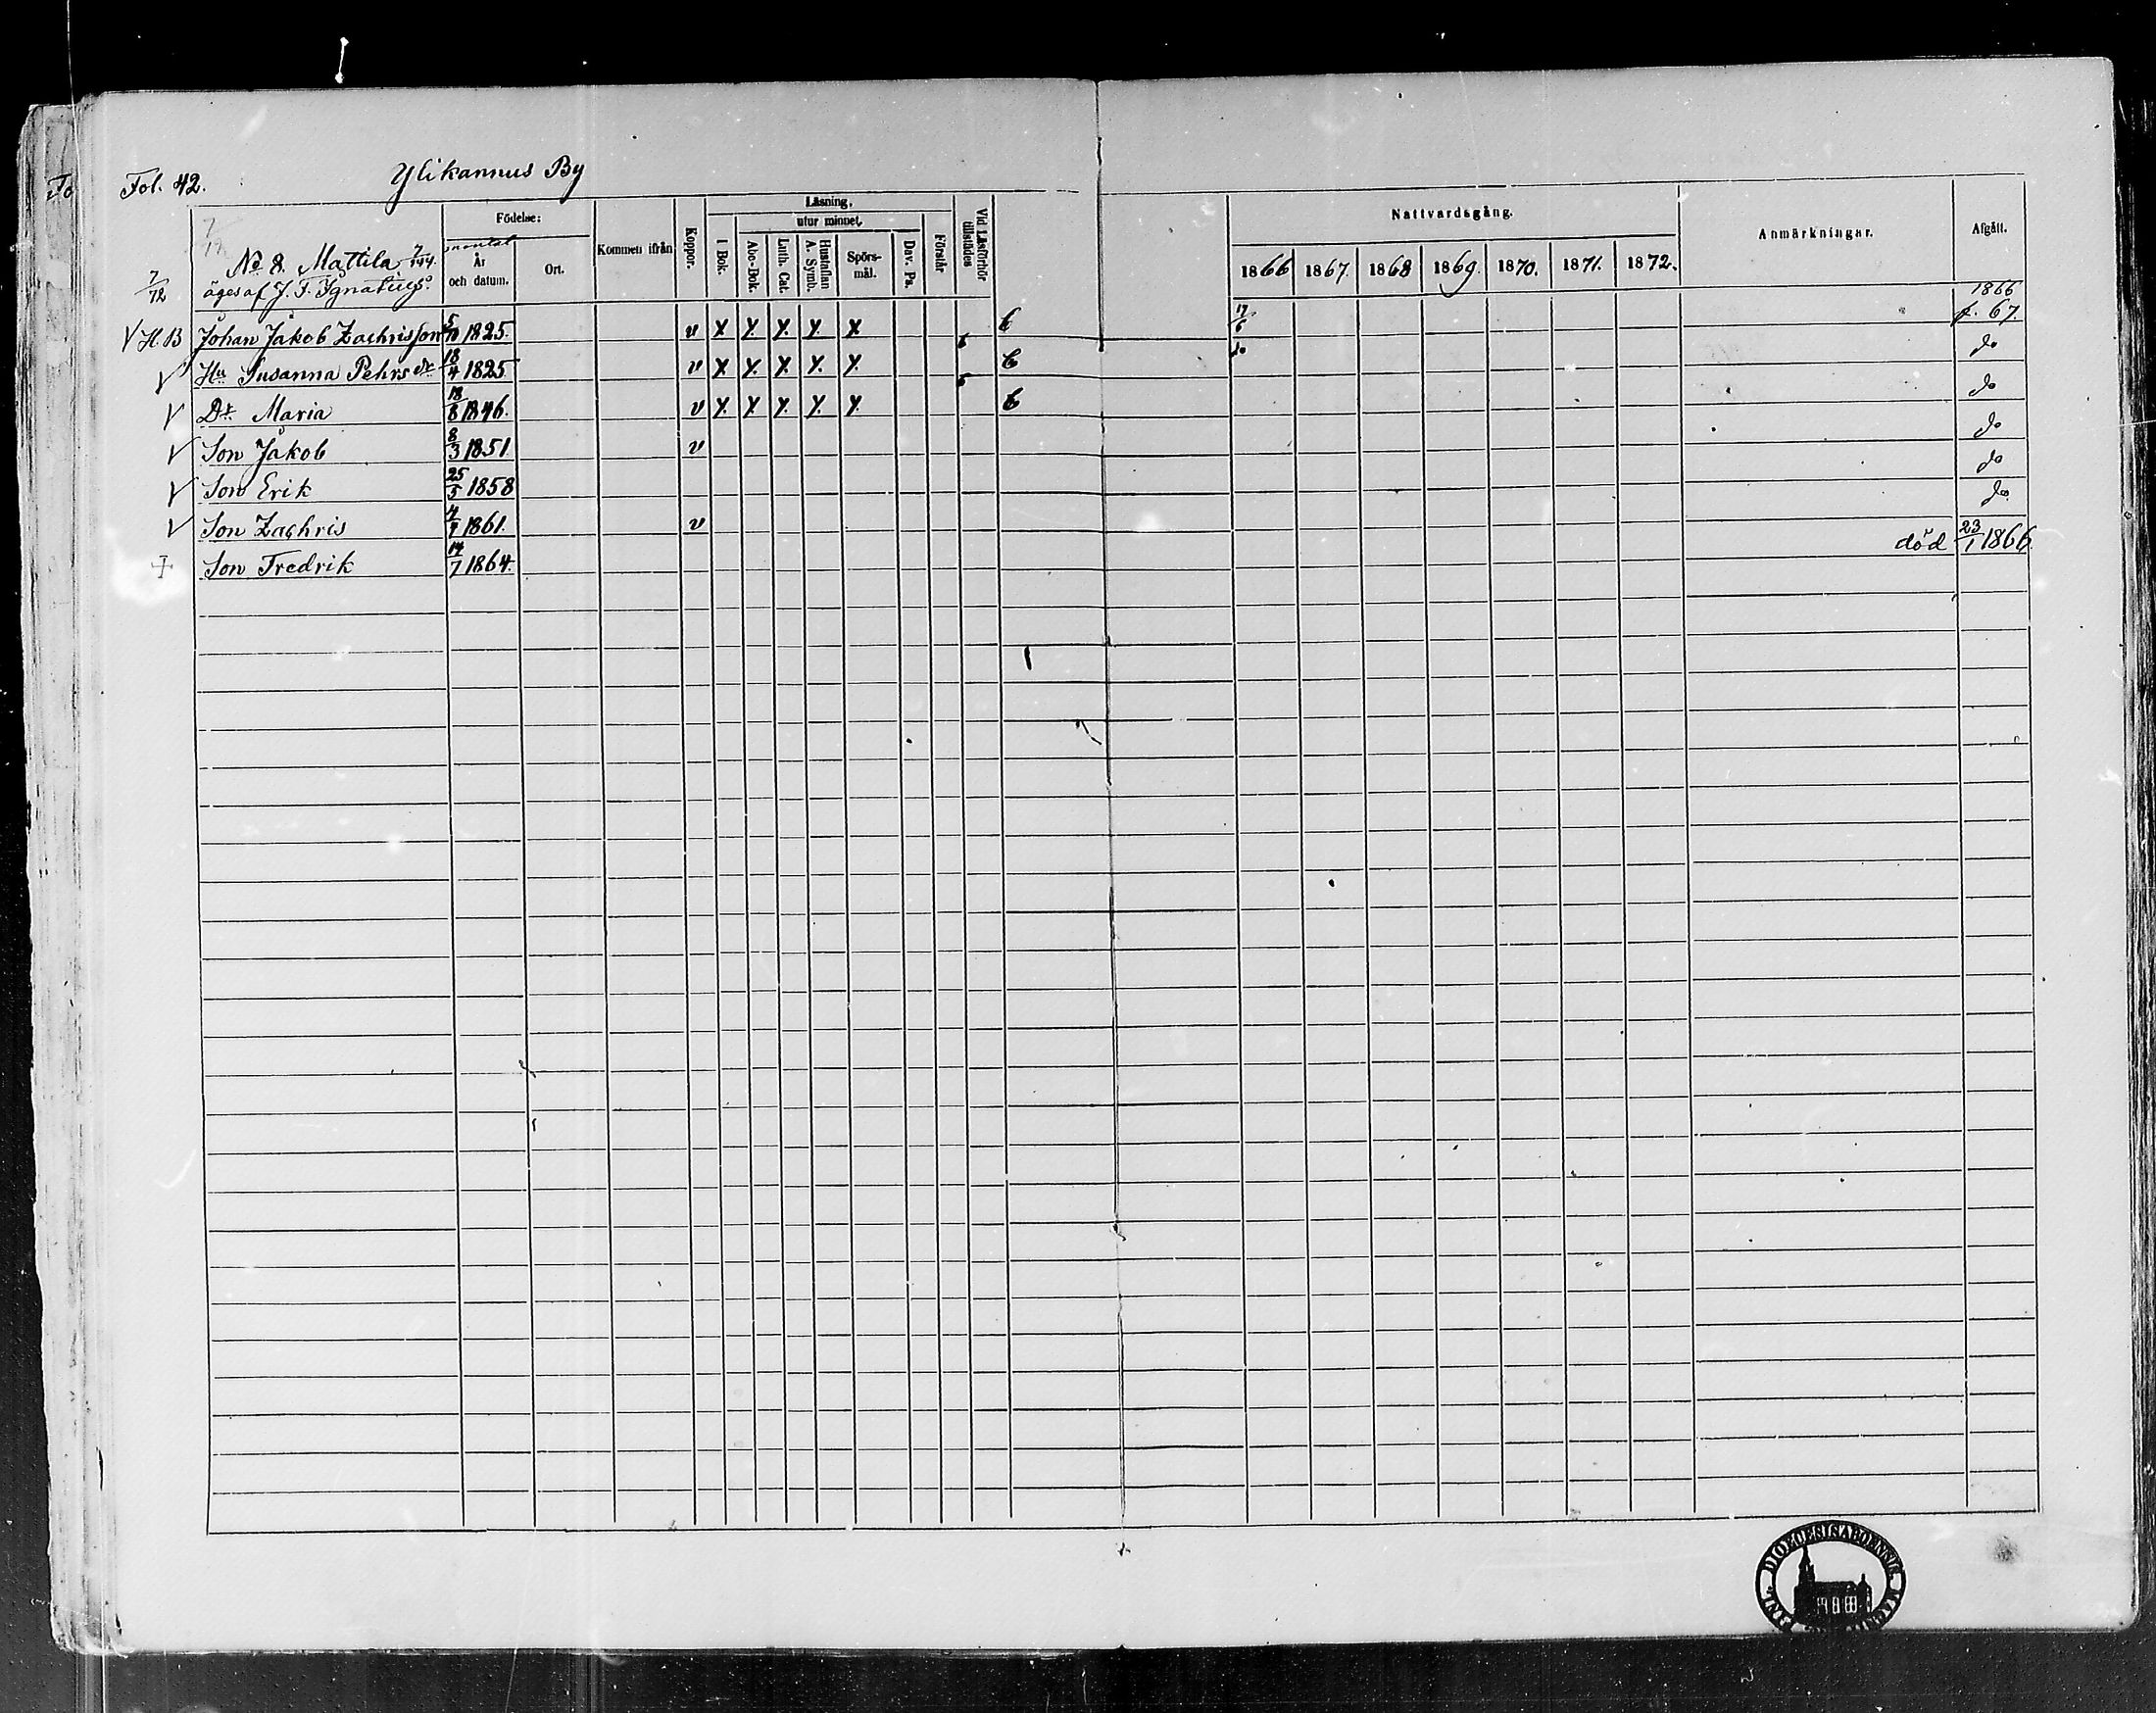 Fol. 42.
Ylikannus By
Födelse:
Kommen ifrån
Koppor.
Läsning,
utur minnet,
I Bok.
Abc-Bok.
Luth. Cat.
Hustaflan
A. Symb.
Spörs-
mål.
Dav. Ps.
Förstår
Vid Läsförhör
tillstädes
Nattvardsgång.
Anmärkningar.
Afgått.
No 8. Mattila 7/144.
äges af J. F. Ignatius.
7/72
mantal
År
och datum.
Ort.
1866 1867. 1868 1869. 1870. 1871. 1872.
1866
V H.B Johan Jakob Zachrisson 5/10 1825. v x x x x x 17/6 f. 67.
V Hu Susanna Pehrs dr 18/4 1825 v x x x x x do do
V Dr Maria 18/8 1846. v x x x x x do
V Son Jakob 8/3 1851 v do
V Son Erik 25/5 1858 do
V Son Zachris 1861. v do
+ Son Fredrik 14/7 1864. död 23/1 1866.
DIOECESIS ABOENSIS